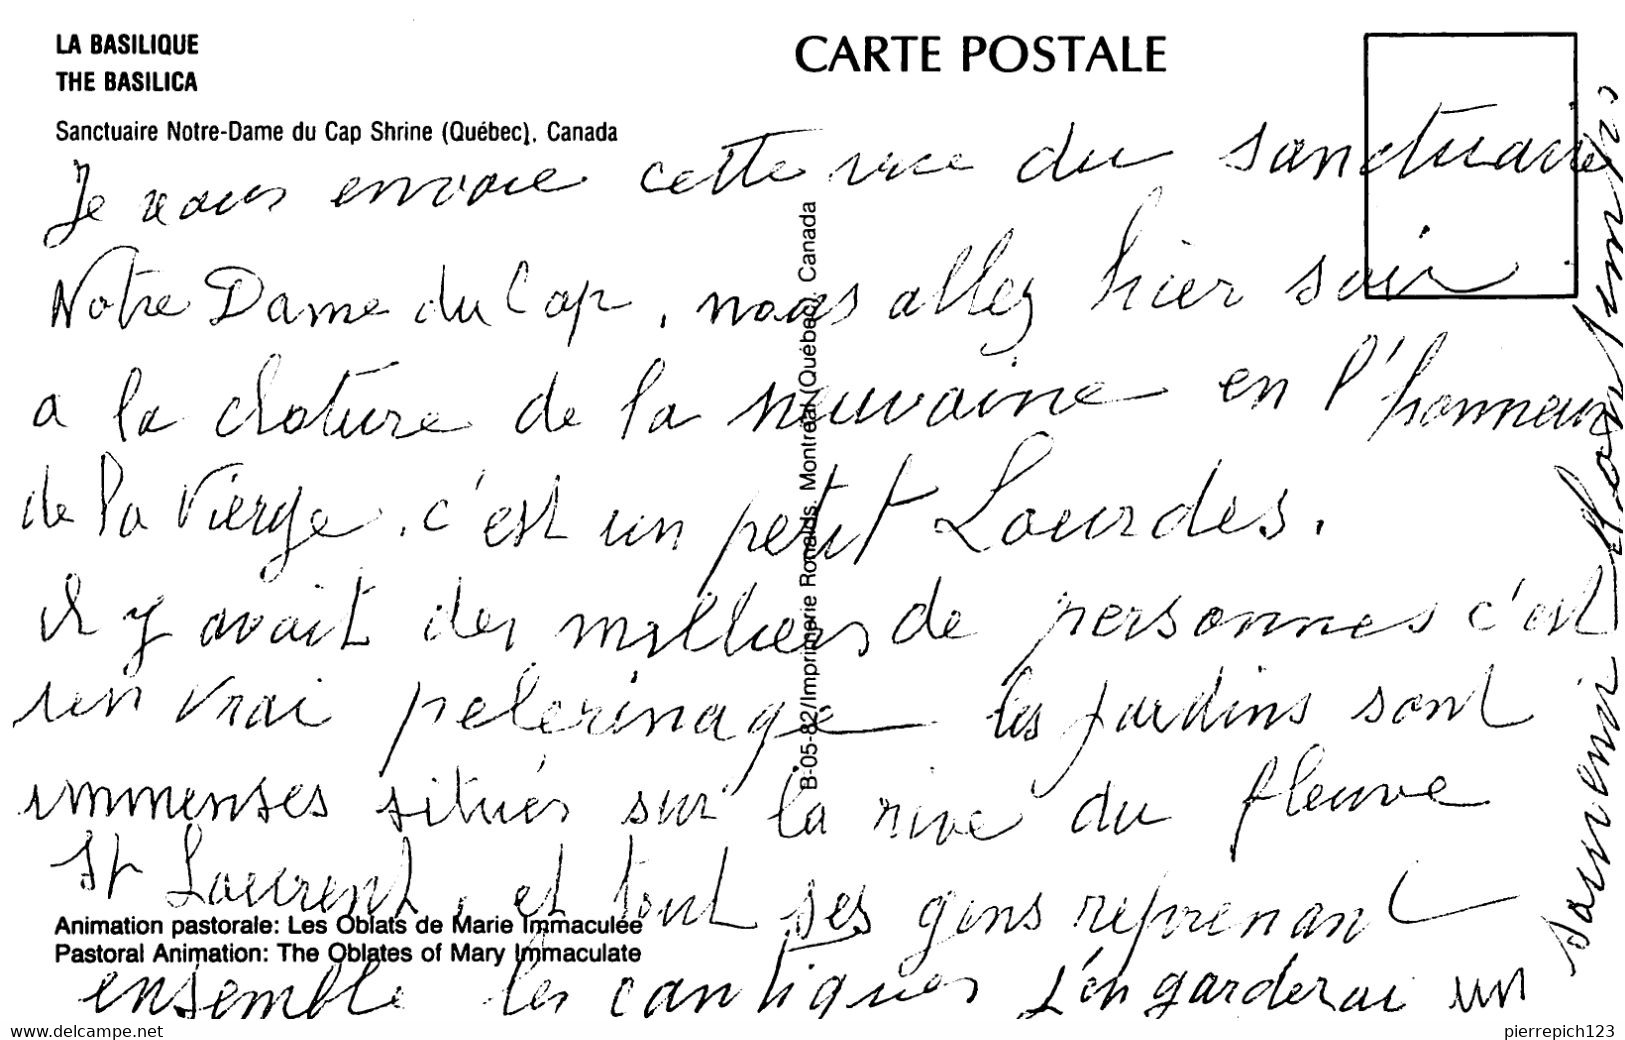 LA BASILIQUE
THE BASILICA
CARTE POSTALE
Sanctuaire Notre-Dame du Cap Shrine (Québec), Canada
Je vous envoie cette vue du sanctuaire
Notre Dame du Cap, nous allez hier soir
a la cloture de la neuvaine en l'honneur
de la Vierge. c'est un petit Lourdes.
Il y avait des milliers de personnes c'est
un vrai pelerinage les jardins sont
immenses situés sur la rive du fleuve
St Laurent, et tout ses gens reprenant
ensemble les cantiques J'en garderai un
souvenir
B-05-82/Imprimerie Ronalds, Montréal (Québec) Canada
Animation pastorale: Les Oblats de Marie Immaculée
Pastoral Animation: The Oblates of Mary Immaculate
www.delcampe.net
pierrepich123